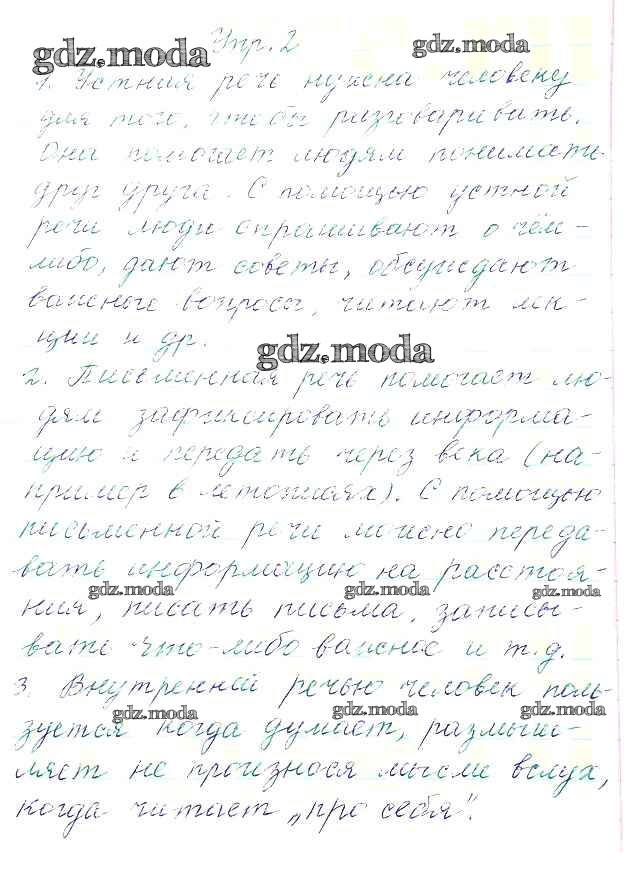 gdz.moda Упр. 2 gdz.moda
1. Устная речь нужна человеку
для того, чтобы разговаривать.
Она помогает людям понимать
друг друга. С помощью устной
речи люди спрашивают о чём-
либо, дают советы, обсуждают
важные вопросы, читают лек-
ции и др.
gdz.moda
2. Письменная речь помогает лю-
дям зафиксировать информа-
цию и передать через века (на-
пример в летописях). С помощью
письменной речи можно переда-
вать информацию на расстоя-
gdz.moda gdz.moda gdz.moda
ния, писать письма, записы-
вать что-либо важное и т.д.
3. Внутренней речью человек поль-
gdz.moda gdz.moda gdz.moda
зуется когда думает, размыш-
ляет не произнося мысли вслух,
когда читает „про себя".